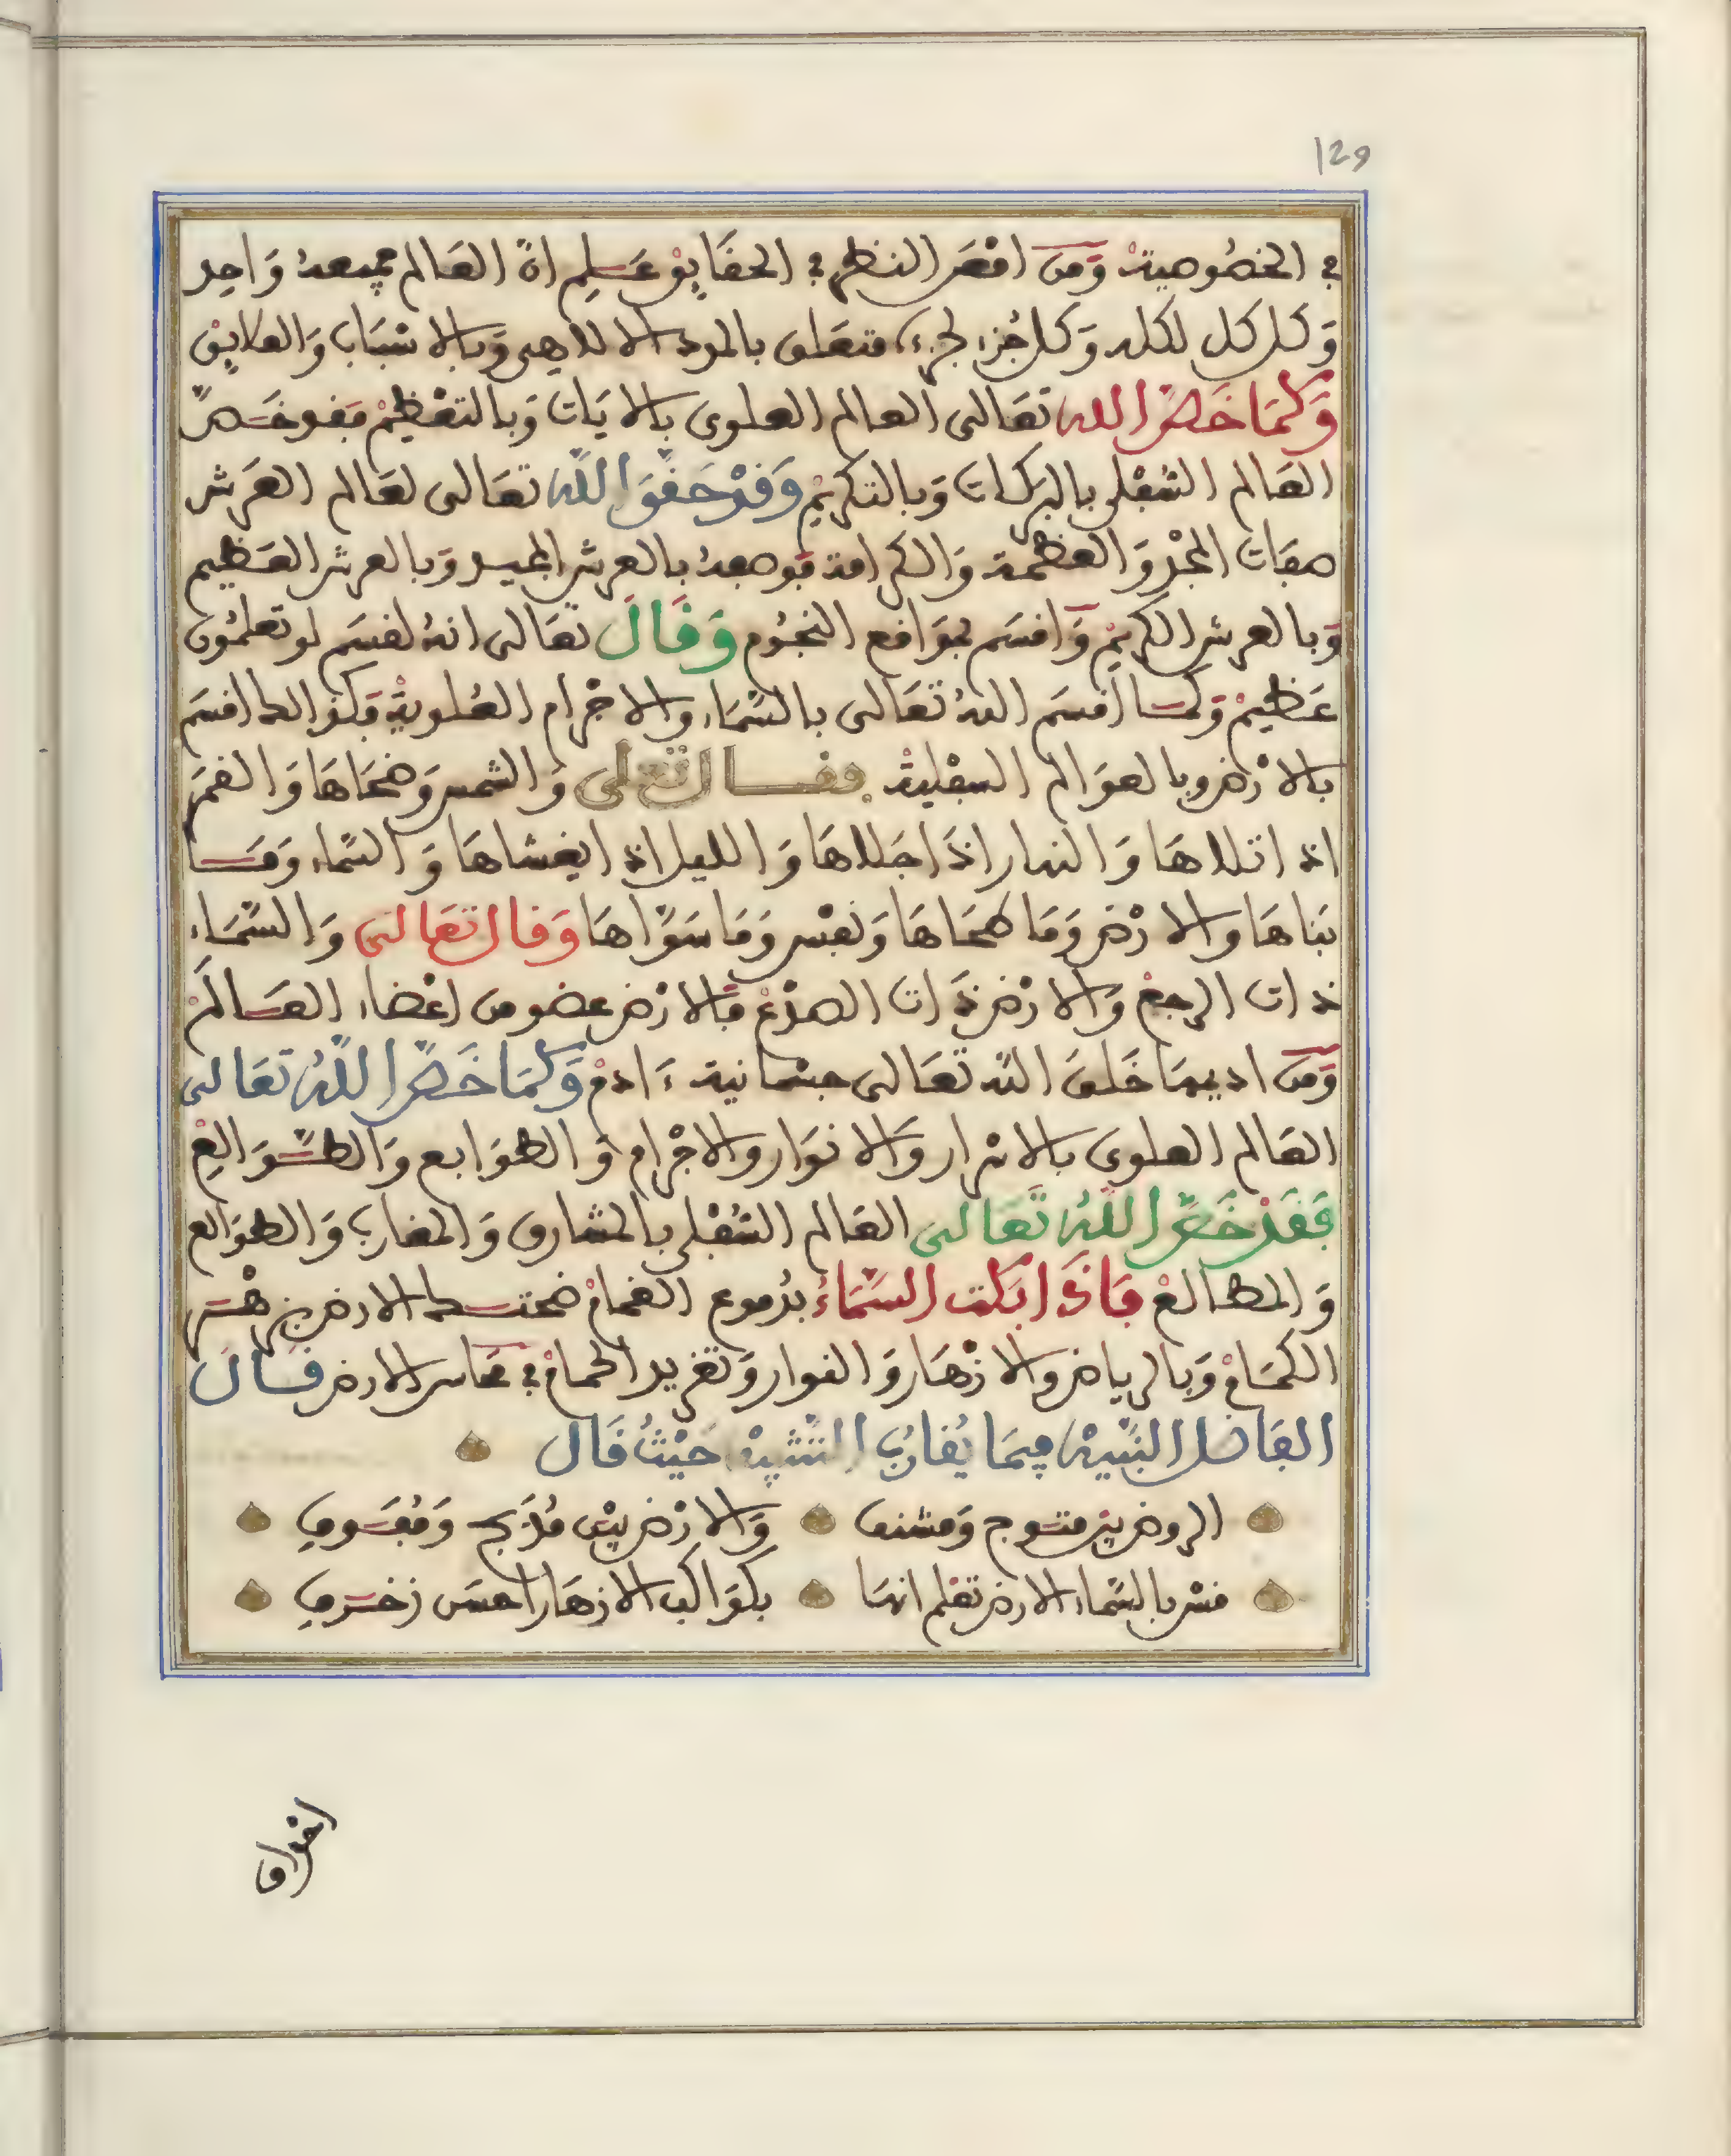 129
في الخصوصية ومن امعن النظر في الحقايق علم ان العالم جميعه واحد
وكل كل لكله وكل جزء لجزء متعلق بالمودة الالاهى وبالاسباب والعلايق
وكما خص الله تعالى العالم العلوى بالايات وبالتعظيم فقد خص
العالم السفلى بالبركات وبالتكريم وقد حقق الله تعالى لعالم العرش
صفات المجد والعظمة والكرامة فوصفه بالعرش المجيد وبالعرش العظيم
وبالعرش الكريم واقسم بمواقع النجوم وقال تعالى انه لقسم لو تعلمون
عظيم وكما اقسم الله تعالى بالسماء والاجرام العلوية فكذالك اقسم
بالارض وبالعوالم السفلية فقال تعالى والشمس وضحاها والقمر
اذا تلاها والنهار اذا جلاها والليل اذا يغشاها والسماء وما
بناها والارض وما طحاها ونفس وما سواها وقال تعالى والسماء
ذات الرجع والارض ذات الصدع فالارض عضو من اعضاء العالم
ومن اديمها خلق الله تعالى جسمانية ءادم وكما خص الله تعالى
العالم العلوى بالاسرار والانوار والاجرام والطوابع والطوالع
فقد خص الله تعالى العالم السفلى بالمشارق والمغارب والطوالع
والمطالع فاذا بكت السماء بدموع الغمام ضحكت الارض بزهر
الكمام وبالرياض والازهار والنوار وتغريد الحمام في محاسن الارض قال
الفاضل النبيه فيما يقارب التشبيه حيث قال
الروض بين متوج ومشنف والارض بين مدبج ومفوف
قس بالسماء الارض تعلم انها بكواكب الازهار احسن زخرف